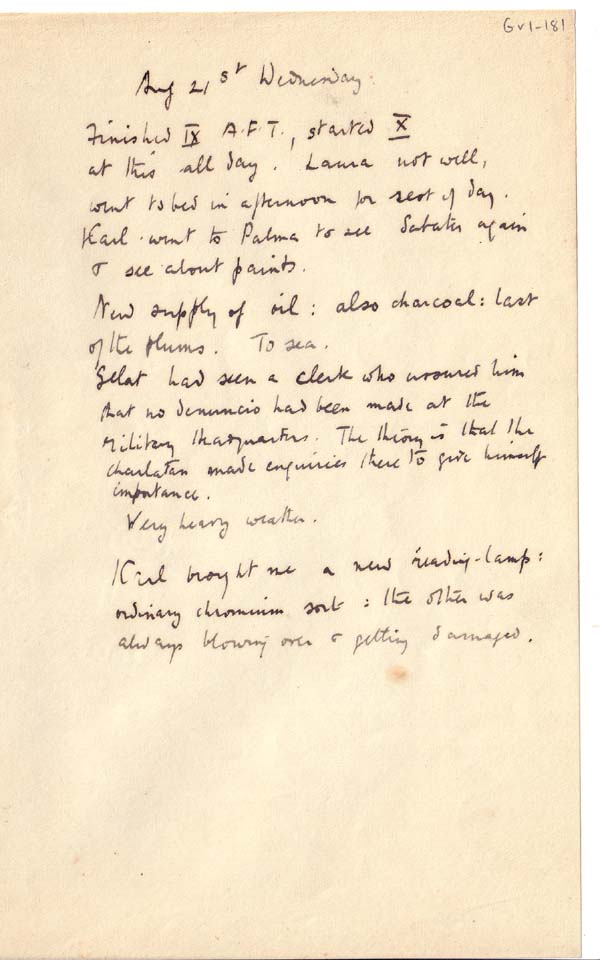 Gv1-181
Aug 21st Wednesday.
Finished IX A.F.T., started X
at this all day. Laura not well,
went to bed in afternoon for rest of day.
Karl went to Palma to see Sabater again
& see about paints.
New supply of oil: also charcoal: last
of the plums. To sea.
Gelat had seen a clerk who assured him
that no denuncio had been made at the
Military Headquarters. The theory is that the
charlatan made enquiries there to give himself
importance.
Very heavy weather.
Karl brought me a new reading-lamp:
ordinary chromium sort: the other was
always blowing over & getting damaged.